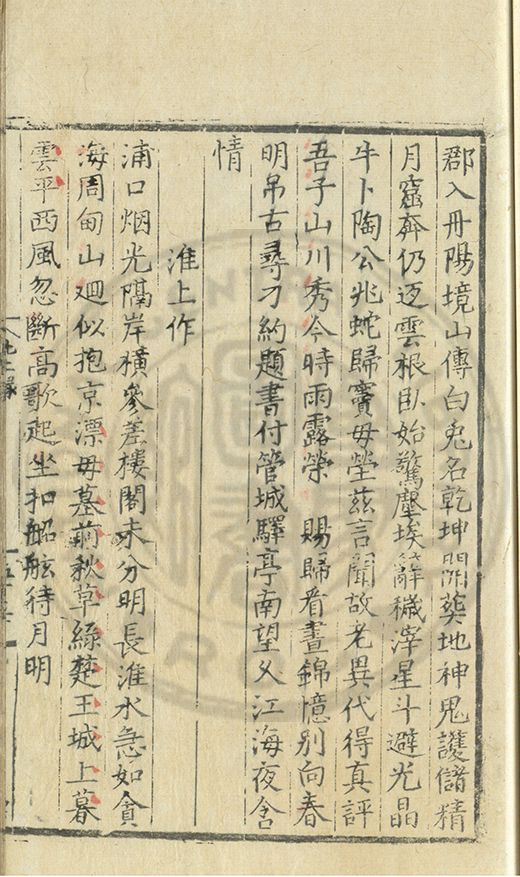 郡入丹陽境山傳白兔名乾坤開葬地神鬼護儲精
月窟奔仍迓雲根臥始驚塵埃辭穢滓星斗避光晶
牛卜陶公兆蛇歸竇母塋茲言聞故老異代得真評
吾子山川秀今時雨露榮 賜歸看晝錦憶別向春
明吊古尋刁約題書付管城驛亭南望久江海夜含
情
淮上作
浦口烟光隔岸橫參差樓閣未分明長淮水急如貪
海周甸山迴似抱京漂母墓前秋草綠楚王城上暮
雲平西風忽斷高歌起坐扣船舷待月明